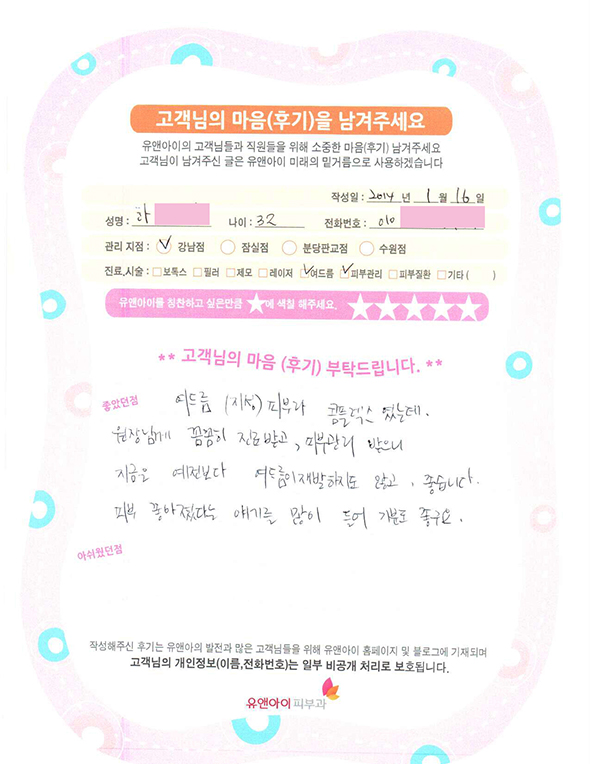 고객님의 마음(후기)을 남겨주세요
유앤아이의 고객님들과 직원들을 위해 소중한 마음(후기) 남겨주세요
고객님이 남겨주신 글은 유앤아이 미래의 밑거름으로 사용하겠습니다
작성일 : 2014 년 1 월 16 일
성명 : 하 나이 : 32 전화번호 : 010
관리 지점 : 강남점 잠실점 분당판교점 수원점
진료,시술 : 보톡스 필러 제모 레이저 여드름 피부관리 피부질환 기타 ( )
유앤아이를 칭찬하고 싶은만큼 ★에 색칠 해주세요. ★★★★★
** 고객님의 마음 (후기) 부탁드립니다. **
좋았던점
여드름 (지성) 피부라 콤플렉스 였는데.
원장님께 꼼꼼히 진료받고, 피부관리 받으니
지금은 예전보다 여드름이 재발하지도 않고, 좋습니다.
피부 좋아졌다는 얘기를 많이 들어 기분도 좋구요.
아쉬웠던점
작성해주신 후기는 유앤아의 발전과 많은 고객님들을 위해 유앤아이 홈페이지 및 블로그에 기재되며
고객님의 개인정보(이름,전화번호)는 일부 비공개 처리로 보호됩니다.
유앤아이 피부과